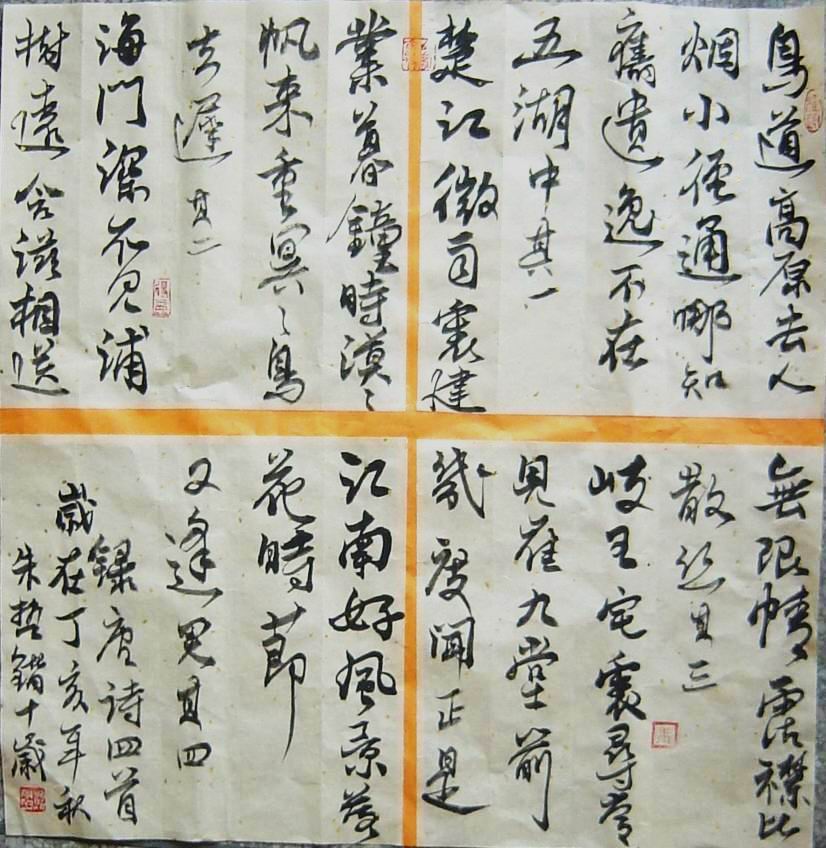 鳥道高原去人
烟小徑通哪知
舊遺逸不在
五湖中其一
楚江微雨裏建
業暮鐘時漠〻
帆來重冥〻鳥
去遲其二
海門深不見浦
樹遠含滋相送
無限情霑襟比
散絲其三
岐王宅裏尋常
見崔九堂前
幾度聞正是
江南好風景落
花時節
又逢君其四
錄唐詩四首
歲在丁亥年秋
朱哲鍇十歲